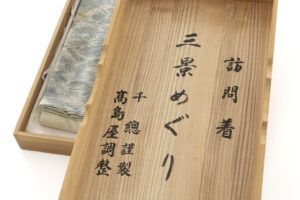 訪問着
三景めぐり
千總謹製
髙島屋調整